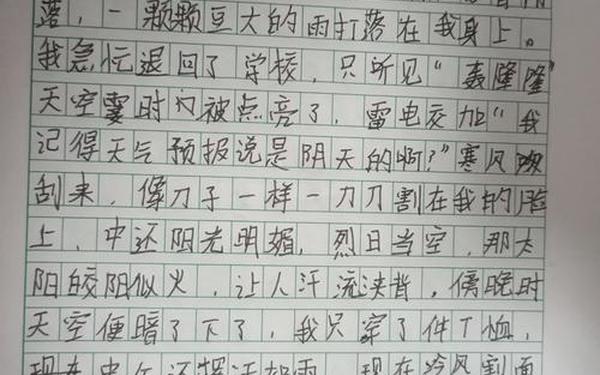 落，一颗颗豆大的雨打落在我身上。
我急忙退回了学校，只听见“轰隆隆”
天空霎时间被点亮了，雷电交加“我
记得天气预报说是阴天的啊？”寒风
刮来，像刀子一样一刀刀割在我的脸
上，中还阳光明媚，烈日当空，那太
阳皎阳似火，让人汗流浃背，傍晚时
天空便暗了下了，我只穿了件T恤，
现在中午还挥汗如雨，现在冷风割面